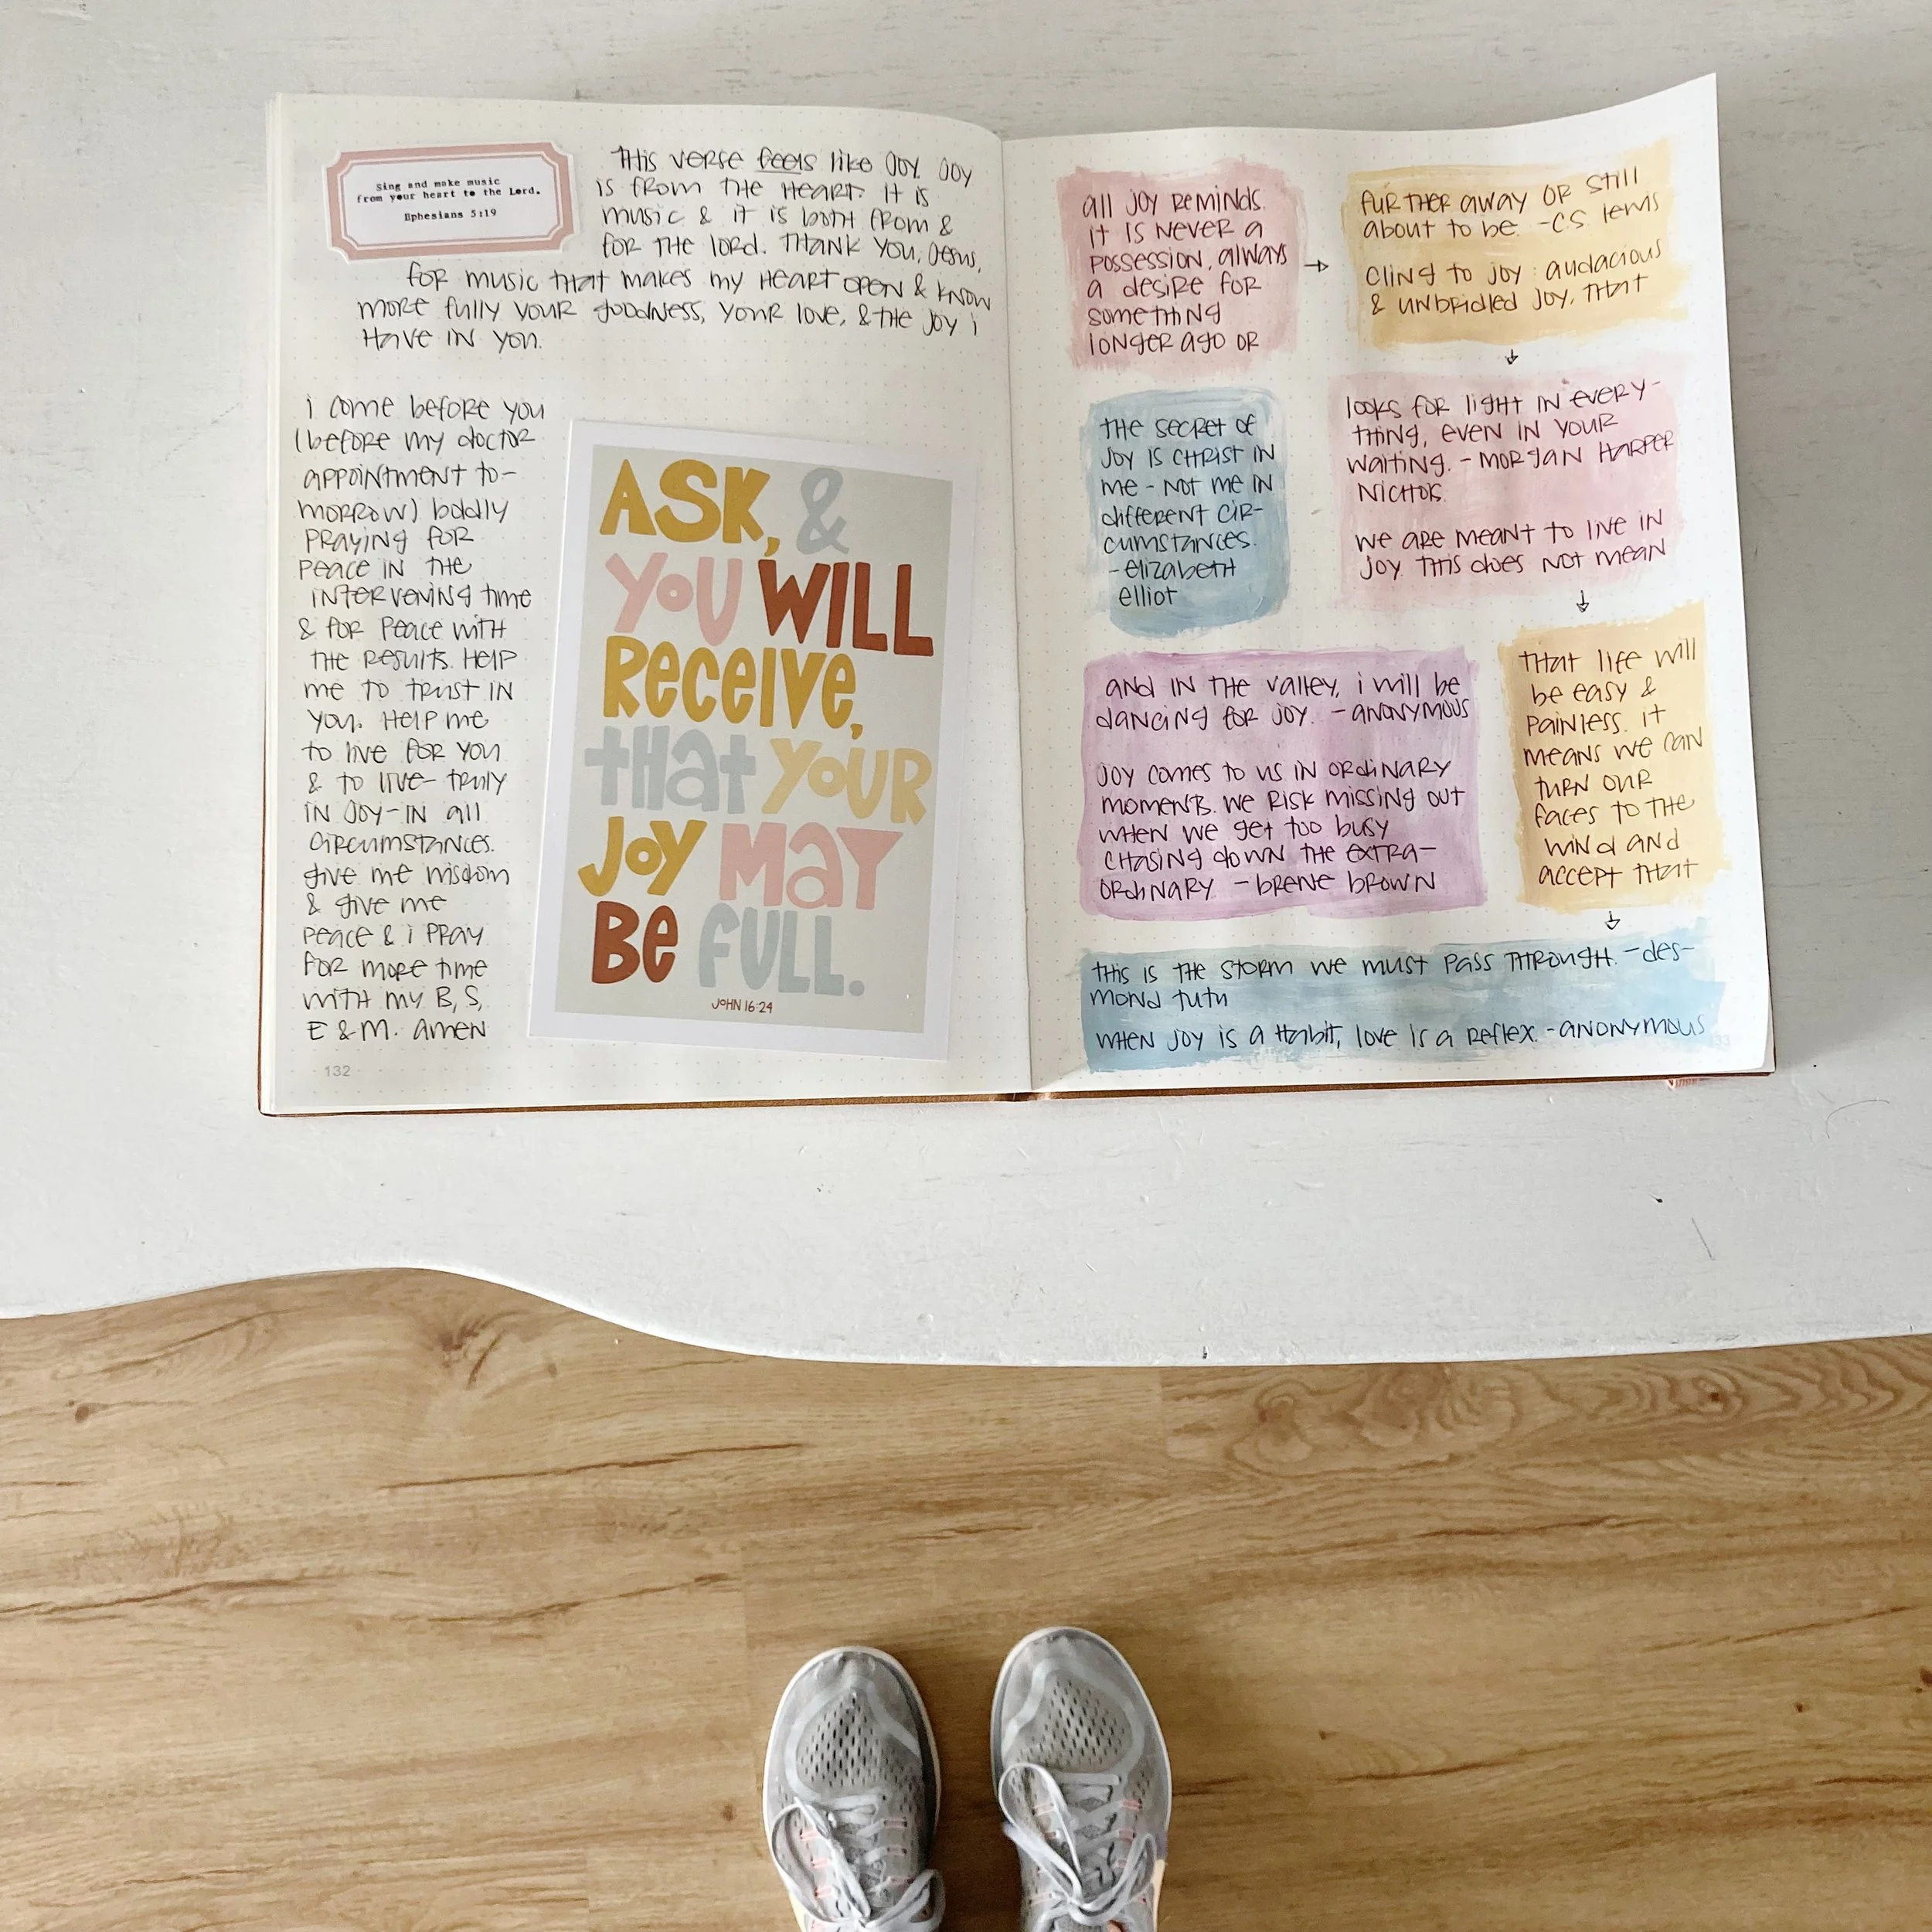 Sing and make music
from your heart to the Lord.
Ephesians 5:19
THIS VERSE feels like JOY. JOY
IS FROM THE HEART. IT IS
MUSIC & IT IS BOTH FROM &
FOR THE LORD. THANK YOU, JESUS,
FOR MUSIC THAT MAKES MY HEART OPEN & KNOW
MORE FULLY YOUR GOODNESS, YOUR LOVE, & THE JOY i
HAVE IN YOU.
i COME BEFORE YOU
(BEFORE MY DOCTOR
APPOINTMENT TO-
MORROW) BOLDLY
PRAYING FOR
PEACE IN THE
INTERVENING TIME
& FOR PEACE WITH
THE RESULTS. HELP
ME TO TRUST IN
YOU. HELP ME
TO LIVE FOR YOU
& TO LIVE- TRULY
IN JOY-IN ALL
CIRCUMSTANCES.
GIVE ME WISDOM
& GIVE ME
PEACE & i PRAY
FOR MORE TIME
WITH MY B, S,
E & M. AMEN
132
ASK, &
YOU WILL
RECEIVE,
THAT YOUR
JOY MAY
BE FULL.
JOHN 16:24
ALL JOY REMINDS.
IT IS NEVER A
POSSESSION, ALWAYS
A DESIRE FOR
SOMETHING
LONGER AGO OR
→
FURTHER AWAY OR STILL
ABOUT TO BE. -CS LEWIS
CLING TO JOY: AUDACIOUS
& UNBRIDLED JOY, THAT
↓
LOOKS FOR LIGHT IN EVERY-
THING, EVEN IN YOUR
WAITING. - MORGAN HARPER
NICHOLS
WE ARE MEANT TO LIVE IN
JOY. THIS DOES NOT MEAN
↓
THAT LIFE WILL
BE EASY &
PAINLESS. IT
MEANS WE CAN
TURN OUR
FACES TO THE
WIND AND
ACCEPT THAT
↓
THIS IS THE STORM WE MUST PASS THROUGH. -DES-
MOND TUTU
WHEN JOY IS A HABIT, LOVE IS A REFLEX. -ANONYMOUS
THE SECRET OF
JOY IS CHRIST IN
ME - NOT ME IN
DIFFERENT CIR-
CUMSTANCES.
-ELIZABETH
ELLIOT
AND IN THE VALLEY, i WILL BE
DANCING FOR JOY. - ANONYMOUS
JOY COMES TO US IN ORDINARY
MOMENTS. WE RISK MISSING OUT
WHEN WE GET TOO BUSY
CHASING DOWN THE EXTRA-
ORDINARY - BRENE BROWN